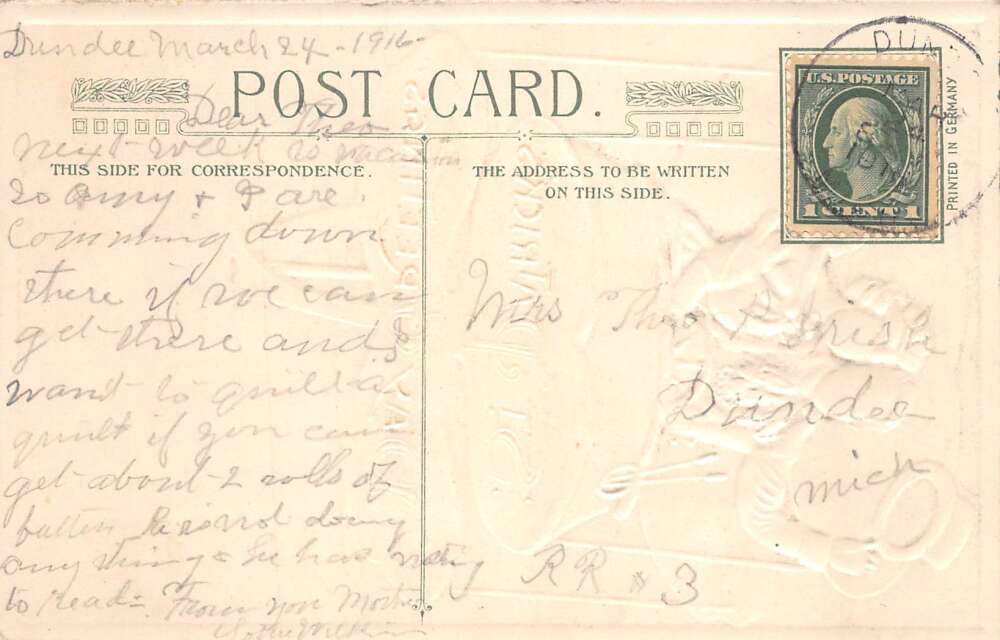 Dundee March 24 - 1916 -
POST CARD.
Dear Theo
next week is vacation
THIS SIDE FOR CORRESPONDENCE.
so Amy & I are
comming down
there if we can
get there and I
want to quilt a
quilt if you can
get about 2 rolls of
batten he is not doing
any thing & he has nothing
to read - From your Mother
THE ADDRESS TO BE WRITTEN
ON THIS SIDE.
U.S. POSTAGE
1 CENT 1
DUN
PRINTED IN GERMANY
Mrs Theo
Dundee
mich
RR # 3